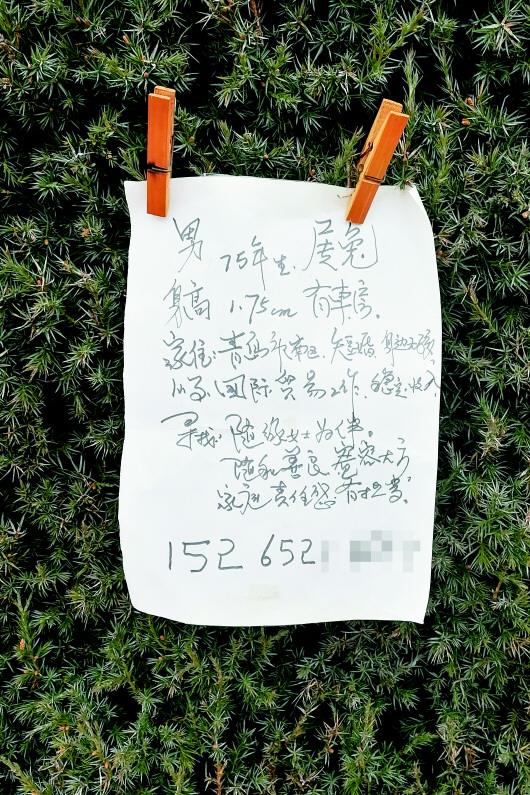 男 75年生. 属兔
身高 1.75cm 有車房.
家住:青岛市南区. 短婚 身边无孩
从事 国际贸易工作. 稳定收入
寻找: 随缘女士为伴.
随和善良 宽容大方
家庭责任感 有担当.
152 652